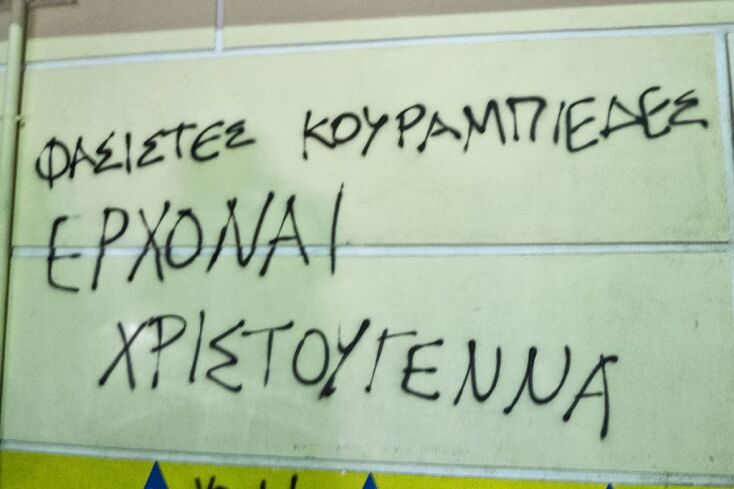 ΦΑΣΙΣΤΕΣ ΚΟΥΡΑΜΠΙΕΔΕΣ
ΕΡΧΟΝΑΙ
ΧΡΙΣΤΟΥΓΕΝΝΑ